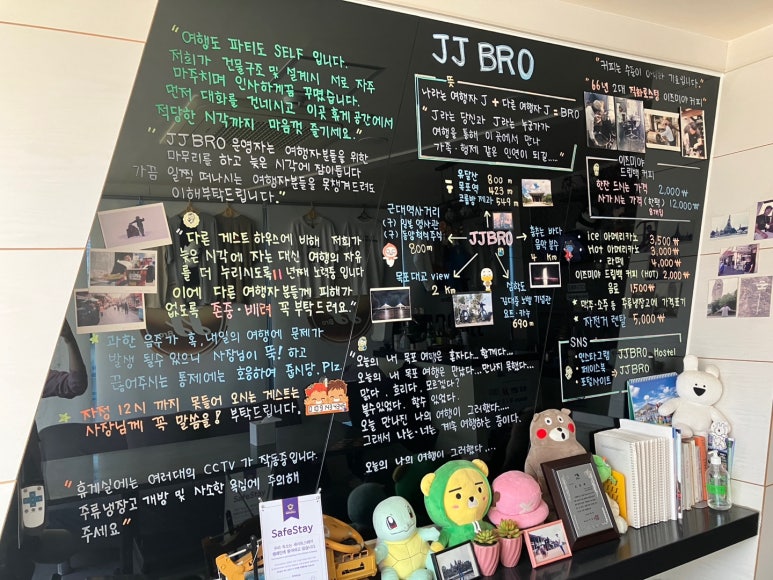 "여행도 파티도 SELF 입니다.
저희가 건물구조 및 설계시 서로 자주
마주치며 인사하게끔 꾸몄습니다.
먼저 대화를 건네시고 이곳 휴게 공간에서
적당한 시각까지 마음껏 즐기세요."
"JJBRO 운영자는 여행자분들을 위한
마무리를 하고 늦은 시간에 잠이듭니다
가끔 일찍 떠나시는 여행자분들을 못챙겨드려도
이해부탁드립니다."
"다른 게스트하우스에 비해 저희가
늦은 시각에 자는 대신 여행의 자유
를 더 누리시도록 11년째 노력중 입니다
이에 다른 여행자분들께 피해가
없도록 존중·배려 꼭 부탁드려요."
과한 음주가 혹, 내일의 여행에 문제가
발생 될수 있으니 사장님이 뚝! 하고
끊어주시는 통제에는 호응하여 줍시당. Plz
자정 12시 까지 못들어 오시는 게스트는
사장님께 꼭 말씀을! 부탁드립니다.
"휴게실에는 여러대의 CCTV 가 작동중입니다.
주류냉장고 개방 및 사소한 욕심에 주의해
주세요"
SafeStay
JJ BRO
뜻
나라는 여행자 J + 다른 여행자 J = BRO
"J라는 당신과 J라는 누군가가
여행을 통해 이곳에서 만나
가족·형제 같은 인연이 되길...."
유달산 800m
목포역 423m
코롬방 제과 549m
근대역사거리
(구) 일본 영사관
(구) 동양척식주식
800m
JJBRO
춤추는 바다
음악 분수
4 Km
목포대교 view
2 Km
삼학도
김대중 노벨 기념관
요트·카누
690m
"오늘의 내 목포 여행은 혼자다... 함께다...
오늘의 내 목포 여행은 만났다...만나지 못했다...
맑다. 흐리다. 모르겠다?
볼수있었다. 할수 있었다.
오늘 만나진 나의 여행이 그러했다....
그래서 나는·너는 계속 여행하는 중이다.
오늘의 나의 여행이 그러했다....
"커피는 수동이 아니라 기호입니다."
"66년 2대 직화로스팅 이즈미야 커피"
이즈미야
드립백 커피
한잔 드시는 가격 2,000₩
사가시는 가격 12,000₩
ice 아메리카노 3,500₩
Hot 아메리카노 3,000₩
라떼 4,000₩
이즈미야 드립백 커피 (HOT) 2,000₩
음료 1,500₩
맥주·소주 등 주류냉장고에 가격표기
자전거 렌탈 5,000₩
SNS
인스타그램 JJBRO_Hostel
페이스북
포털사이트 JJBRO